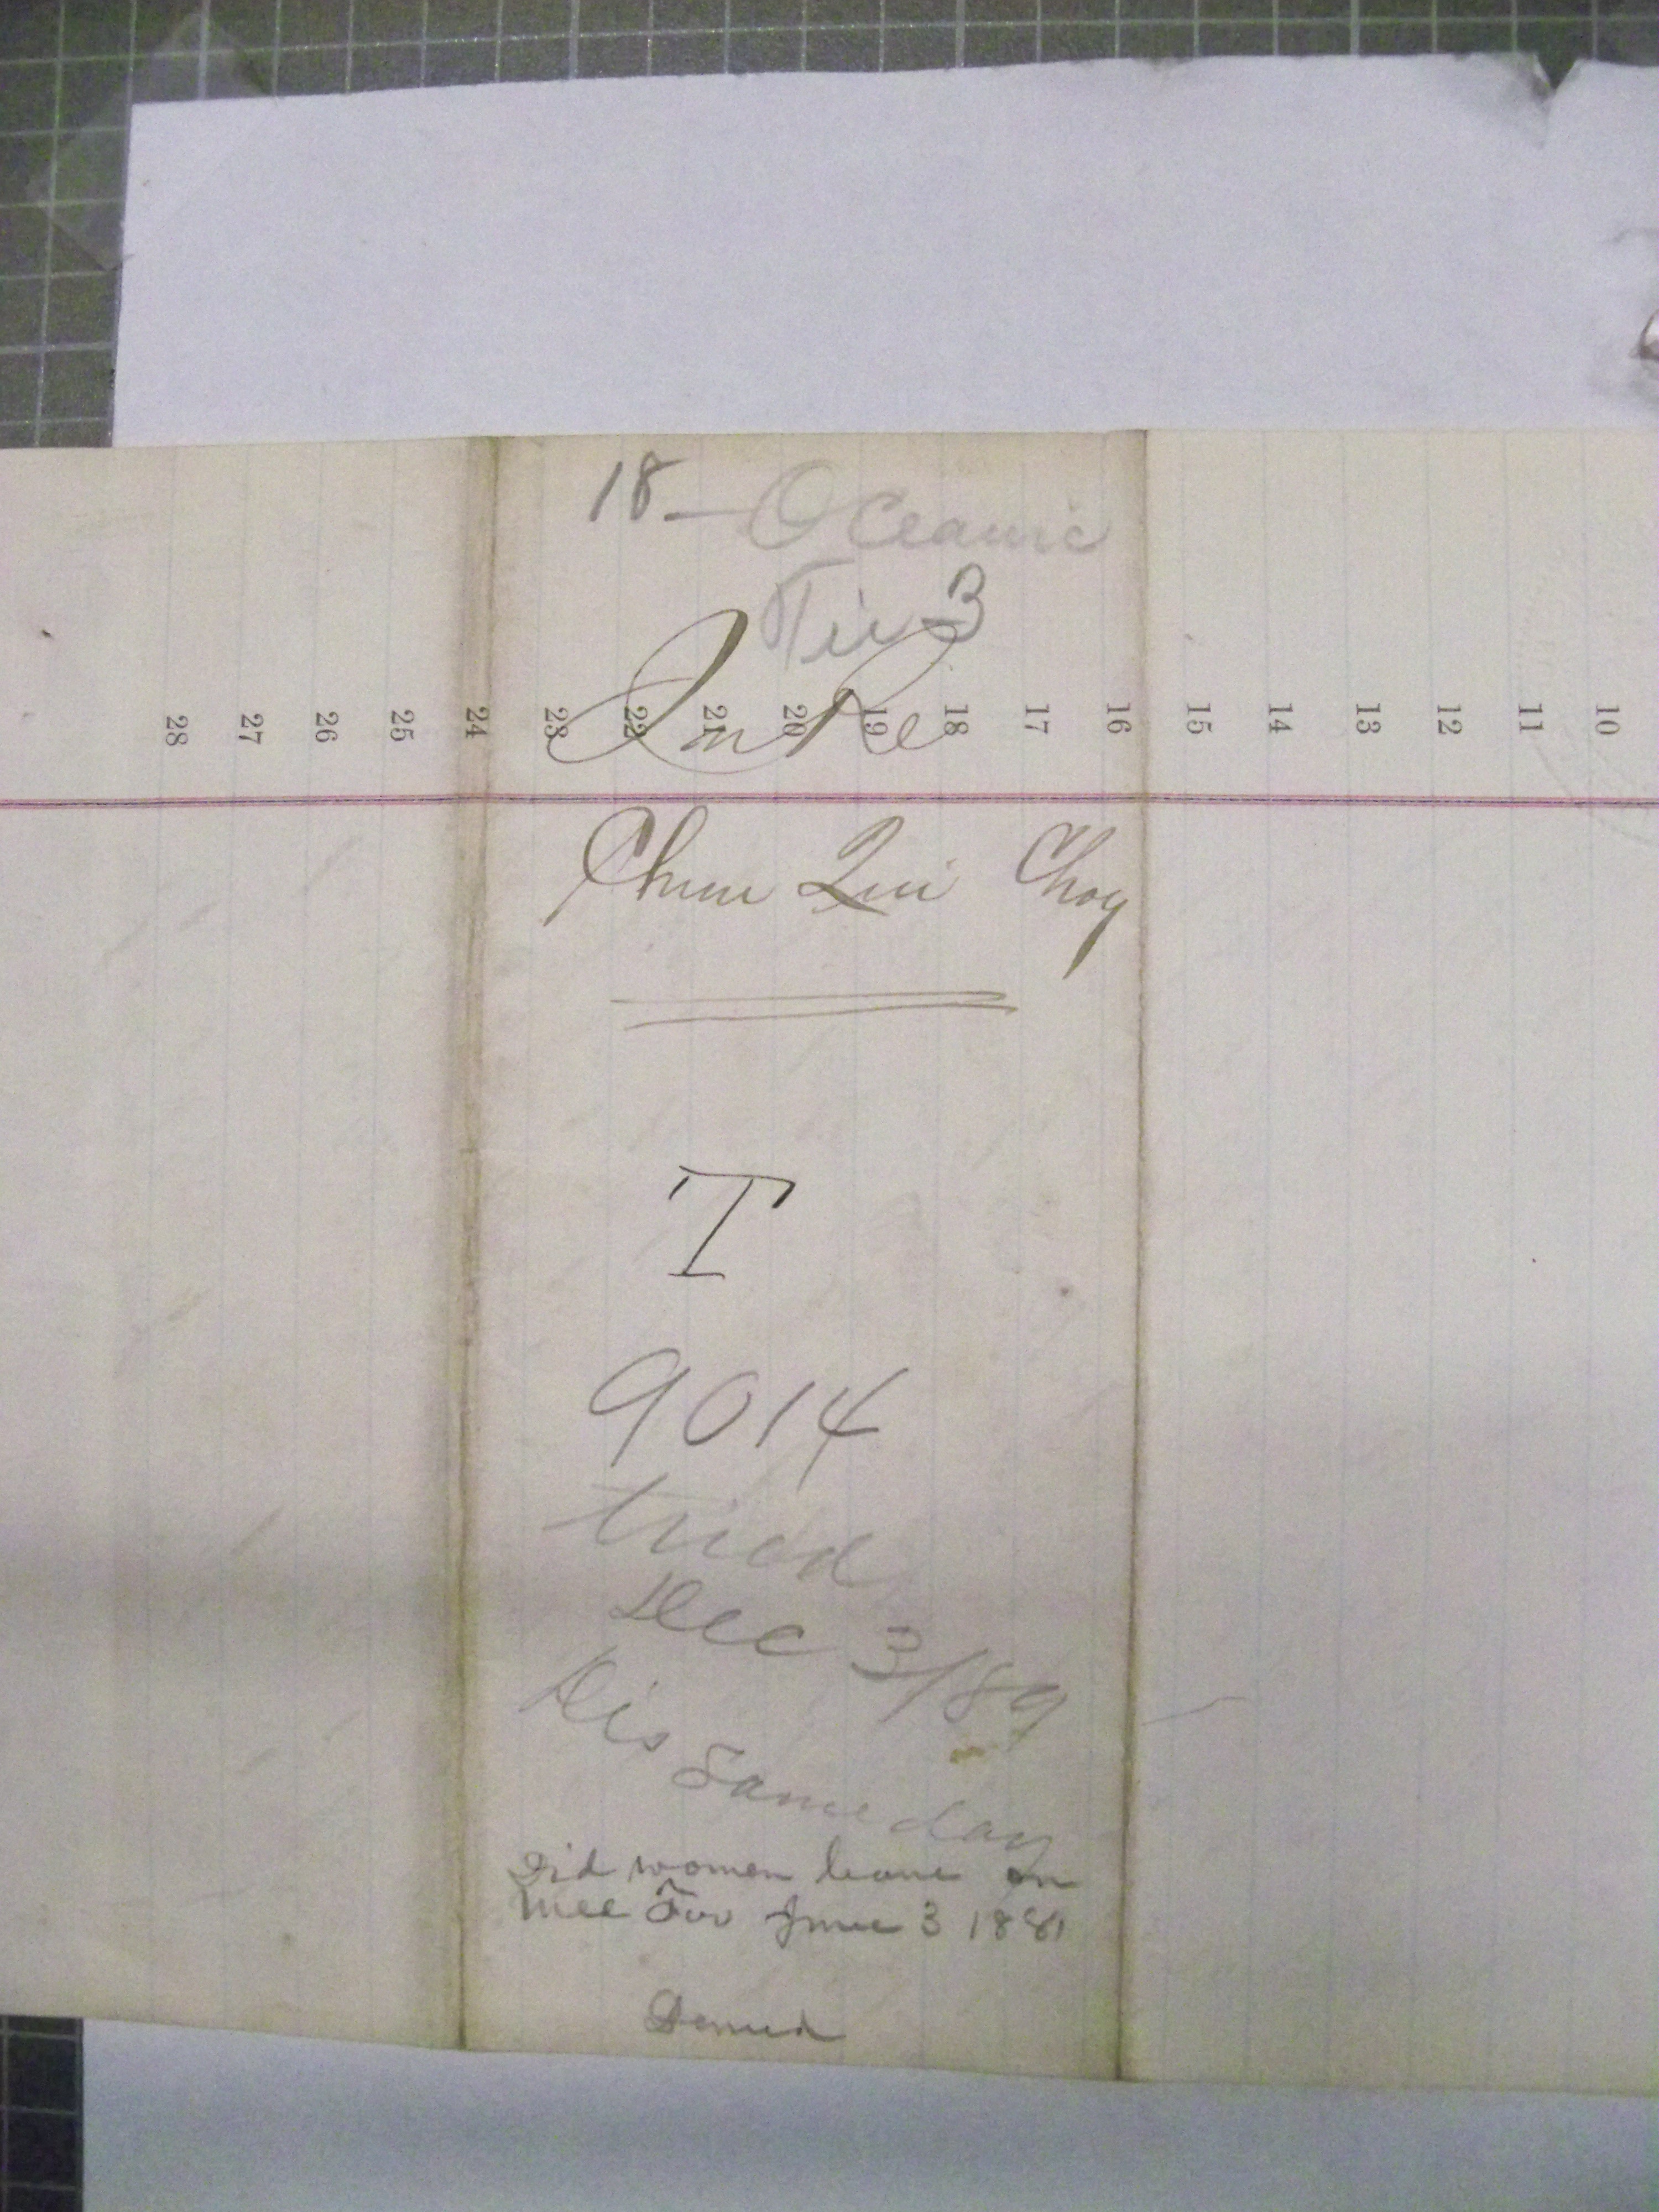 18 - Oceanic
Tie 3
In Re
28 27 26 25 24 23 22 21 20 19 18 17 16 15 14 13 12 11 10
Chun Qui Choy
T
9014
tried
Dec 3/89
Dis Same day
Did women leave on
June 3 1881
Denied